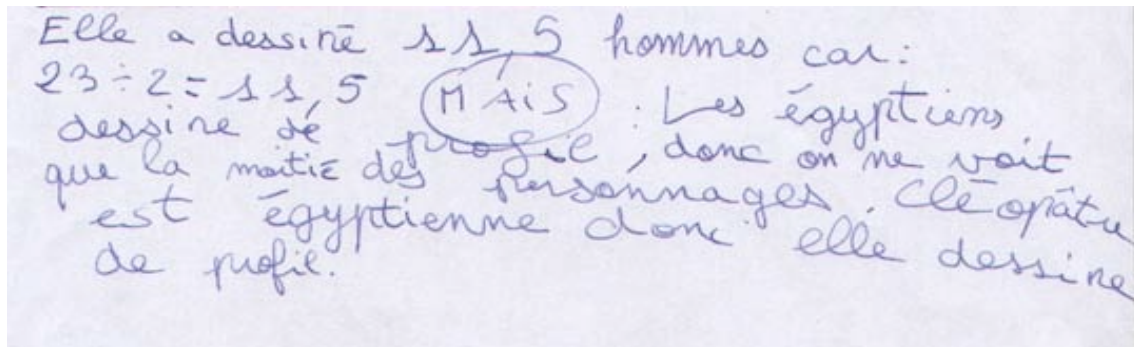 Elle a dessiné 11,5 hommes car:
23÷2=11,5 MAIS : Les égyptiens
dessine de profil, donc on ne voit
que la moitié des personnages. Cléopâtre
est égyptienne donc elle dessine
de profil.